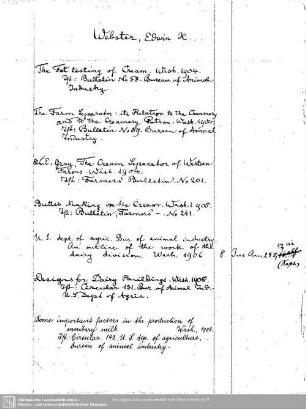 Webster, Edwin H...
The Fat testing of Cream. Wash. 1904.
Bulletin No 58. Bureau of Animal
Industry
The Farm Separator: its Relation to the Creamery
and to the Creamery Patron. Wash. 190
Bulletin No 59. Bureau of Animal
Industry
& C.E. Gray, The Cream Separator of Western
Farms. Wash. 1904.
Farmers' Bulletin No 201.
Butter Making on the Farm. Wash. 1905.
Bulletin, Farmers' - No 241.
U. S. dept. of agric. Bur. of animal industry.
An outline of the work of the
dairy division. Wash. 1906
8
Designs for Dairy Buildings. Wash. 1908.
Circular 131. Bur. of Animal Ind.
U.S. Dept of Agric.
Some important factors in the production of
sanitary milk Wash., 1909.
Circular 142 U. S. dep. of agriculture,
bureau of animal industry.